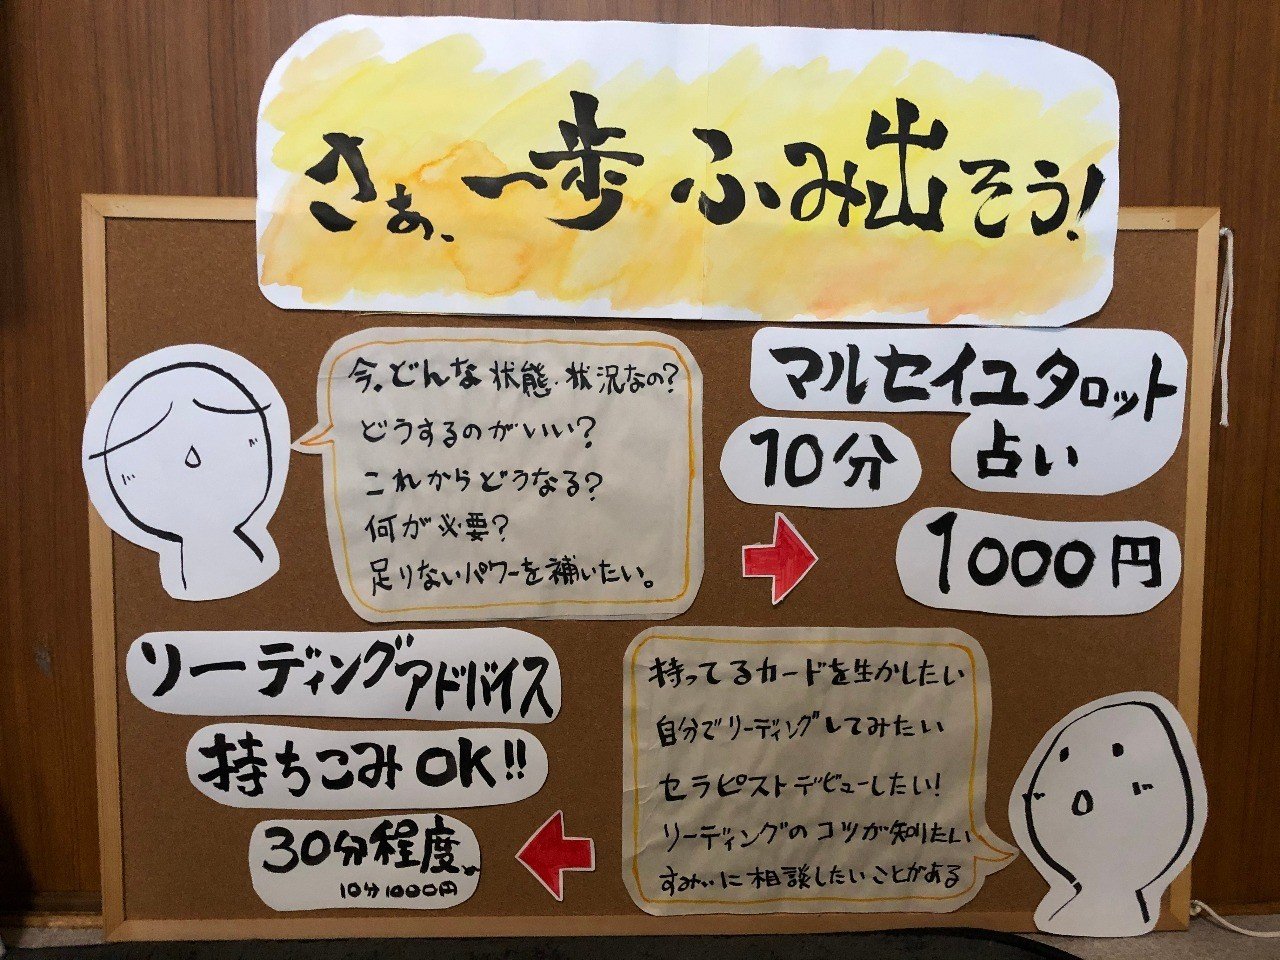 さぁ、一歩ふみ出そう!
今、どんな状態・状況なの?
どうするのがいい?
これからどうなる?
何が必要?
足りないパワーを補いたい。
マルセイユタロット
占い
10分
1000円
リーディングアドバイス
持ちこみOK!!
30分程度
10分1000円
持ってるカードを生かしたい
自分でリーディングしてみたい
セラピストデビューしたい!
リーディングのコツが知りたい
すみぃに相談したいことがある